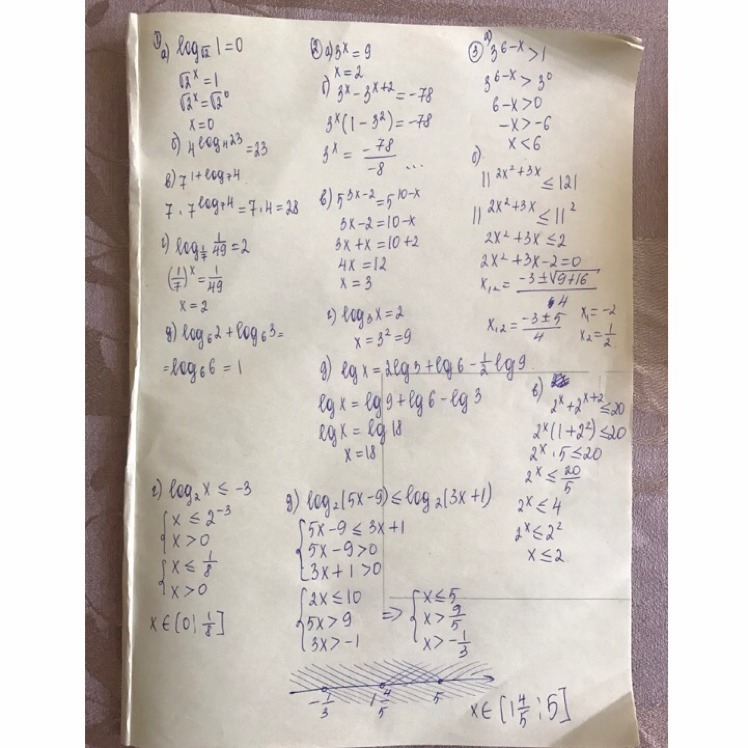 ① а) log_{√2} 1 = 0
√2^x = 1
√2^x = √2^0
x = 0
б) 4^{log_4 23} = 23
в) 7^{1+log_7 4}
7 · 7^{log_7 4} = 7 · 4 = 28
г) log_{1/7} 1/49 = 2
(1/7)^x = 1/49
x = 2
д) log_6 2 + log_6 3 =
= log_6 6 = 1
② а) 3^x = 9
x = 2
б) 3^x - 3^{x+2} = -78
3^x (1 - 3^2) = -78
3^x = -78/-8 ...
в) 5^{3x-2} = 5^{10-x}
3x - 2 = 10 - x
3x + x = 10 + 2
4x = 12
x = 3
г) log_3 x = 2
x = 3^2 = 9
д) lg x = 2lg 3 + lg 6 - 1/2 lg 9
lg x = lg 9 + lg 6 - lg 3
lg x = lg 18
x = 18
③ а) 3^{6-x} > 1
3^{6-x} > 3^0
6 - x > 0
-x > -6
x < 6
б)
11^{2x²+3x} ≤ 121
11^{2x²+3x} ≤ 11^2
2x² + 3x ≤ 2
2x² + 3x - 2 = 0
x_{1,2} = (-3 ± √(9+16))/4
x_{1,2} = (-3 ± 5)/4 x_1 = -2
x_2 = 1/2
в)
2^x + 2^{x+2} ≤ 20
2^x (1 + 2^2) ≤ 20
2^x · 5 ≤ 20
2^x ≤ 20/5
2^x ≤ 4
2^x ≤ 2^2
x ≤ 2
г) log_2 x ≤ -3
{ x ≤ 2^{-3}
x > 0
{ x ≤ 1/8
x > 0
x ∈ (0; 1/8]
д) log_2 (5x - 9) ≤ log_2 (3x + 1)
{ 5x - 9 ≤ 3x + 1
5x - 9 > 0
3x + 1 > 0
{ 2x ≤ 10
5x > 9
3x > -1
=> { x ≤ 5
x > 9/5
x > -1/3
-1/3 1 4/5 5
x ∈ (1 4/5; 5]